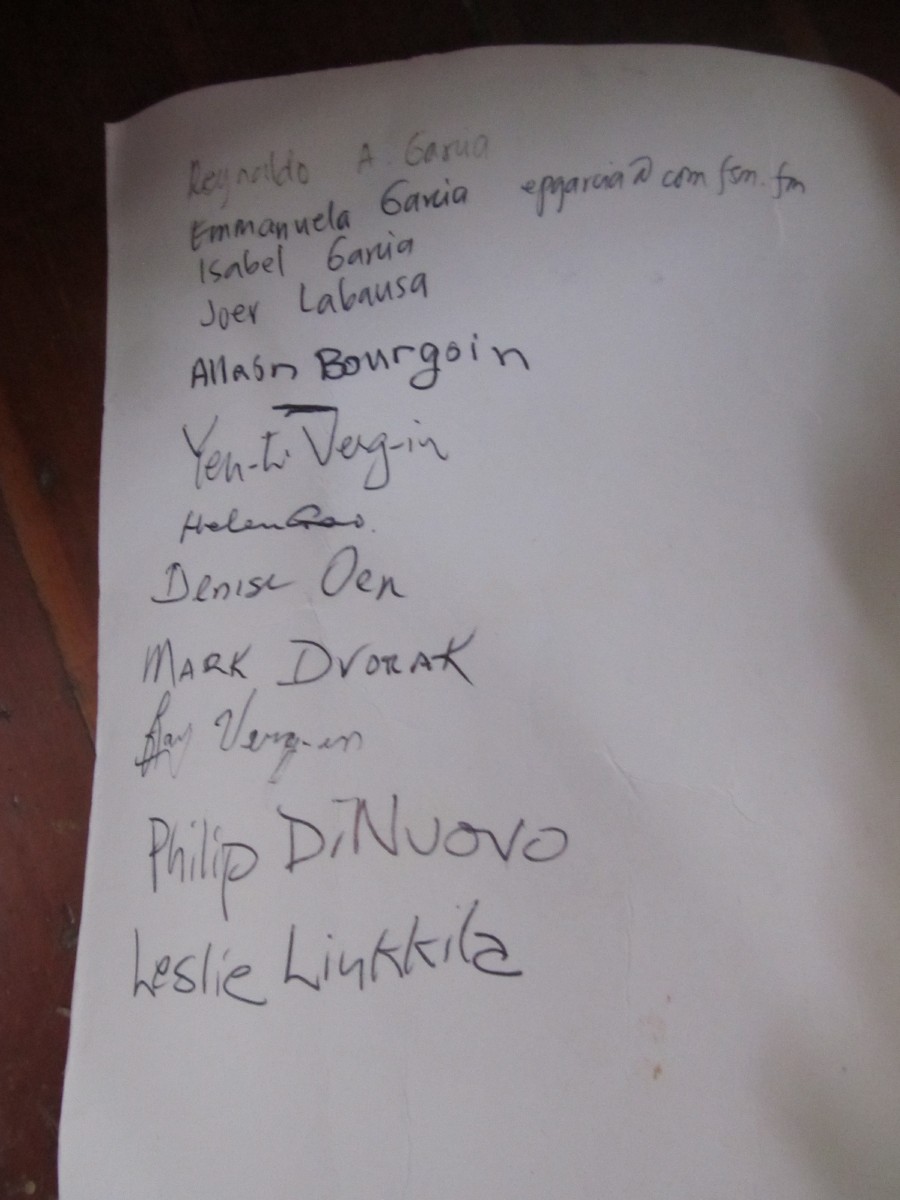 Reynaldo A. Garcia
Emmanuela Garcia epgarcia@comfsm.fm
Isabel Garcia
Joer Labausa
Allain Bourgoin
Yen-ti Verg-in
Helen Gao.
Denise Oen
MARK DVORAK
Verg-in
Philip DiNuovo
Leslie Liukkila